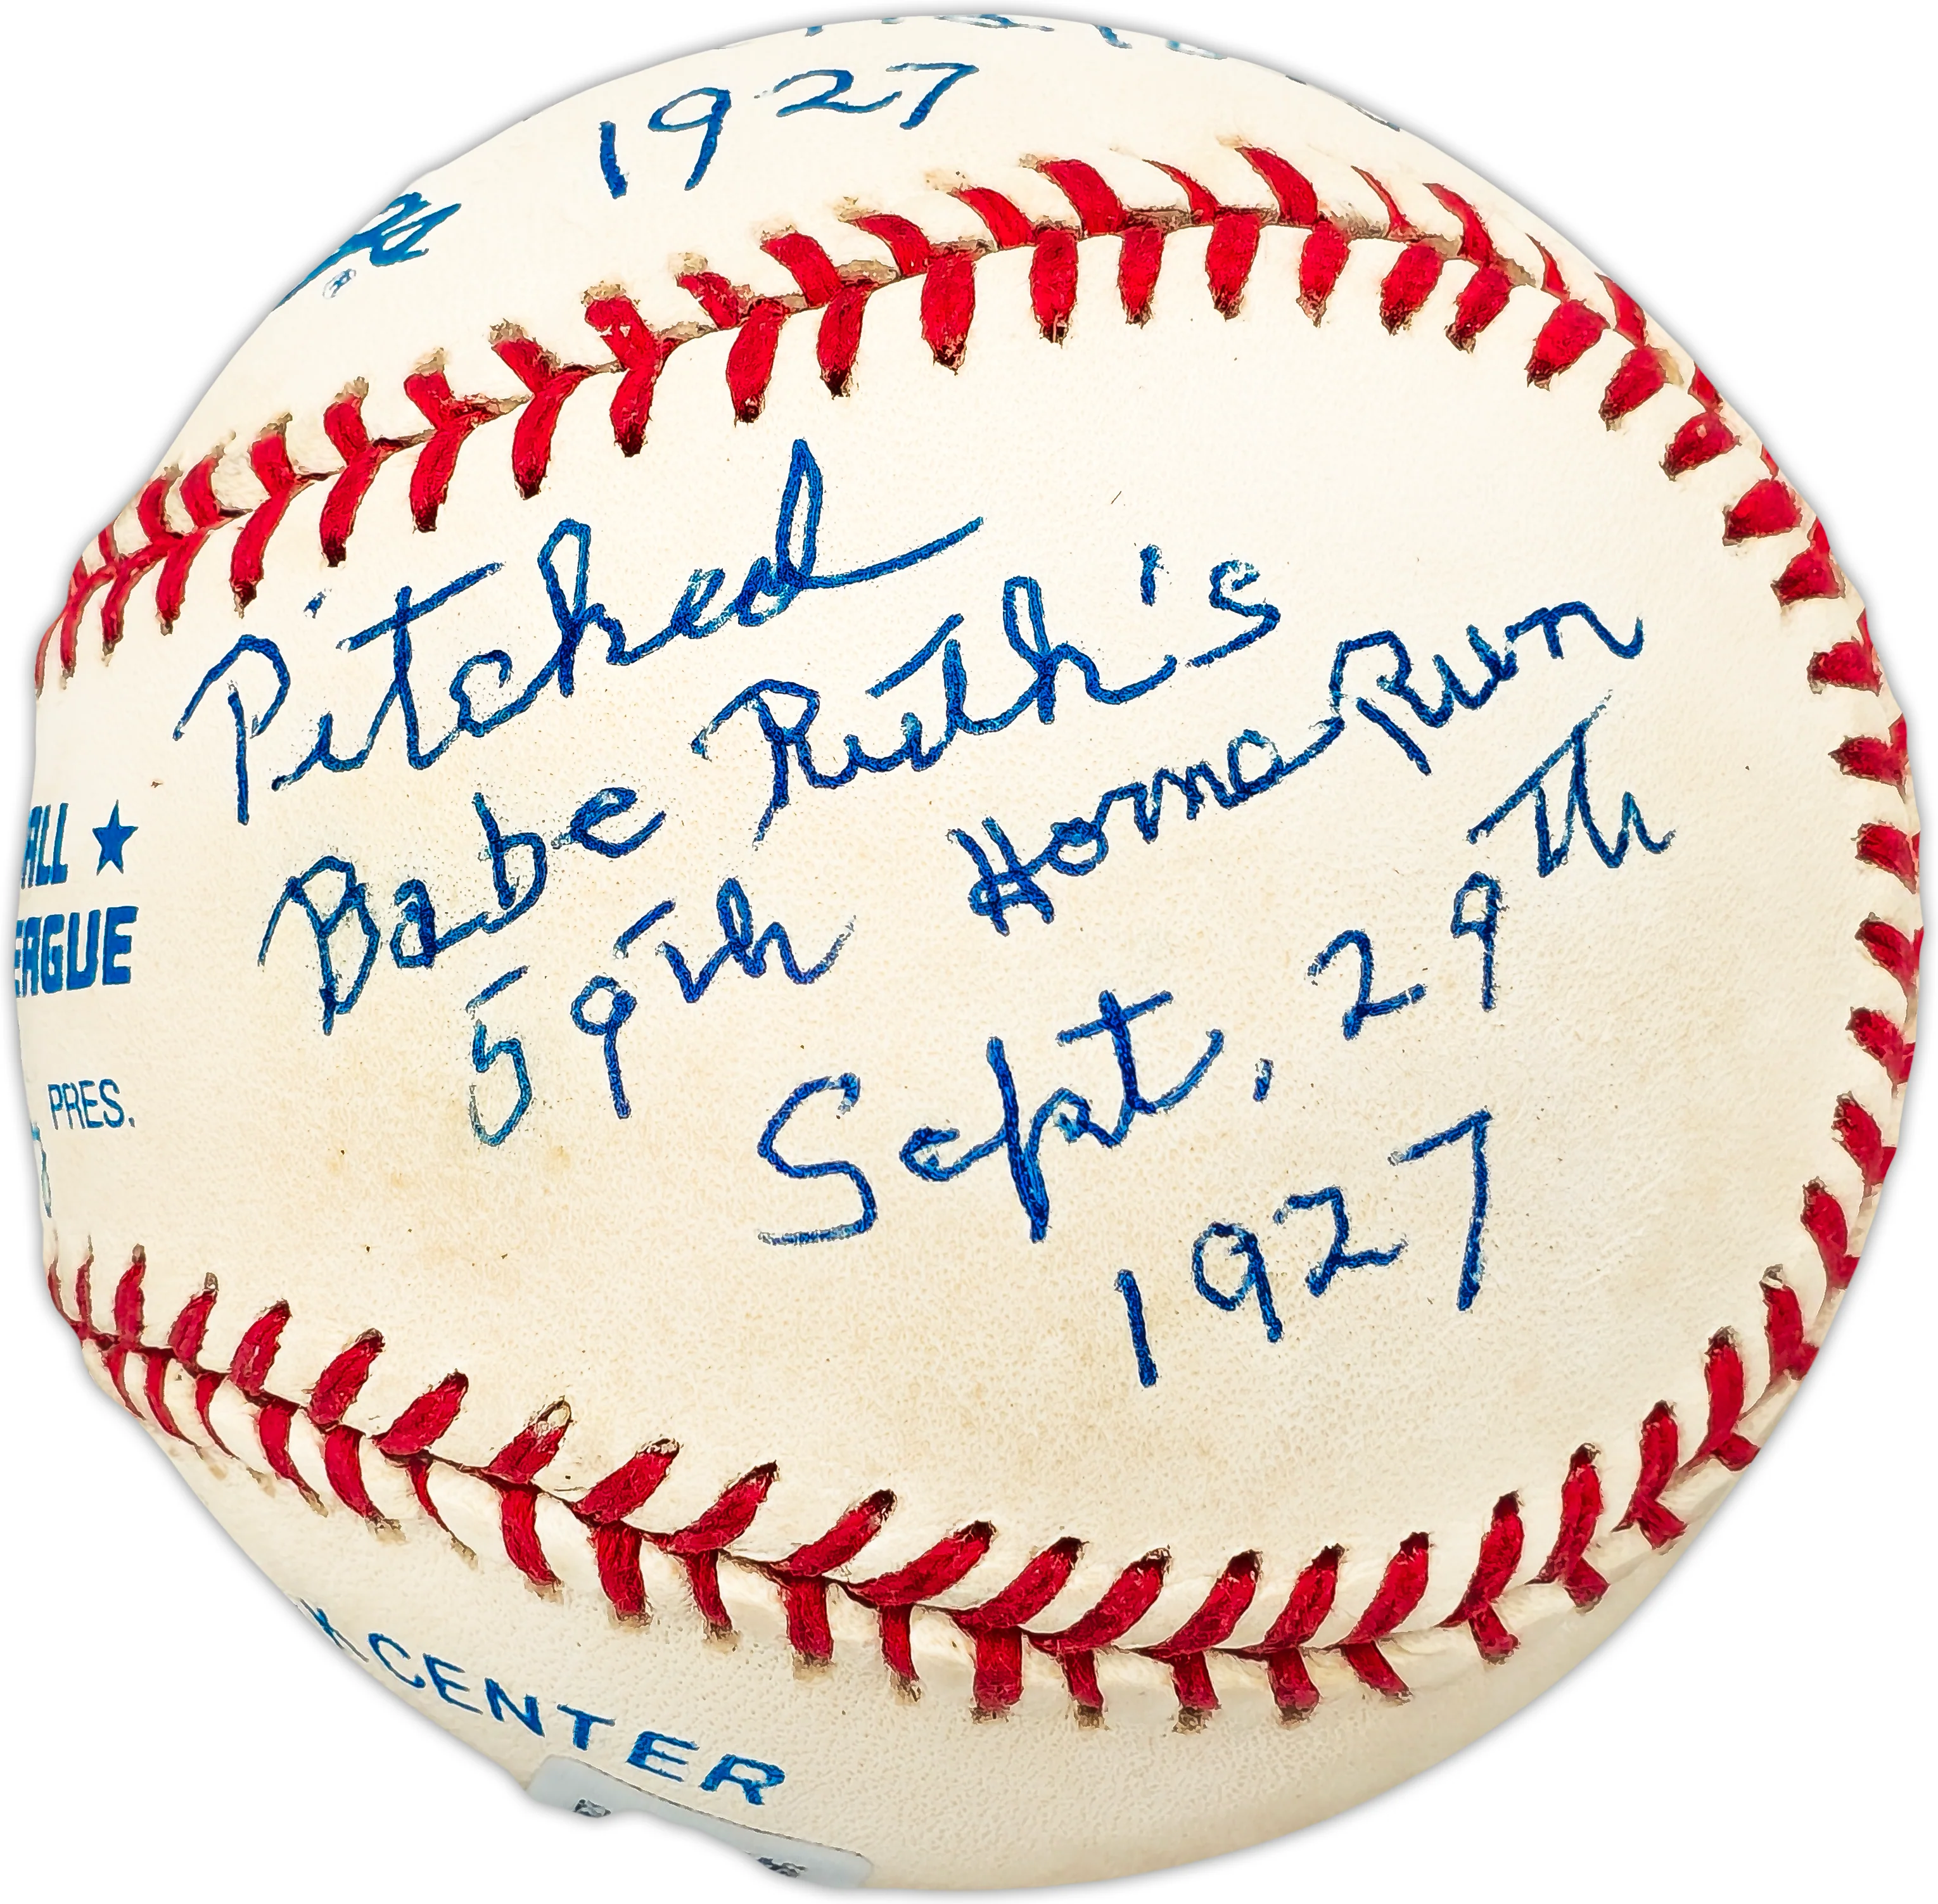 1927
Pitched
Babe Ruth's
59th Home Run
Sept, 29th
1927
ALL ★
EAGUE
PRES.
CENTER